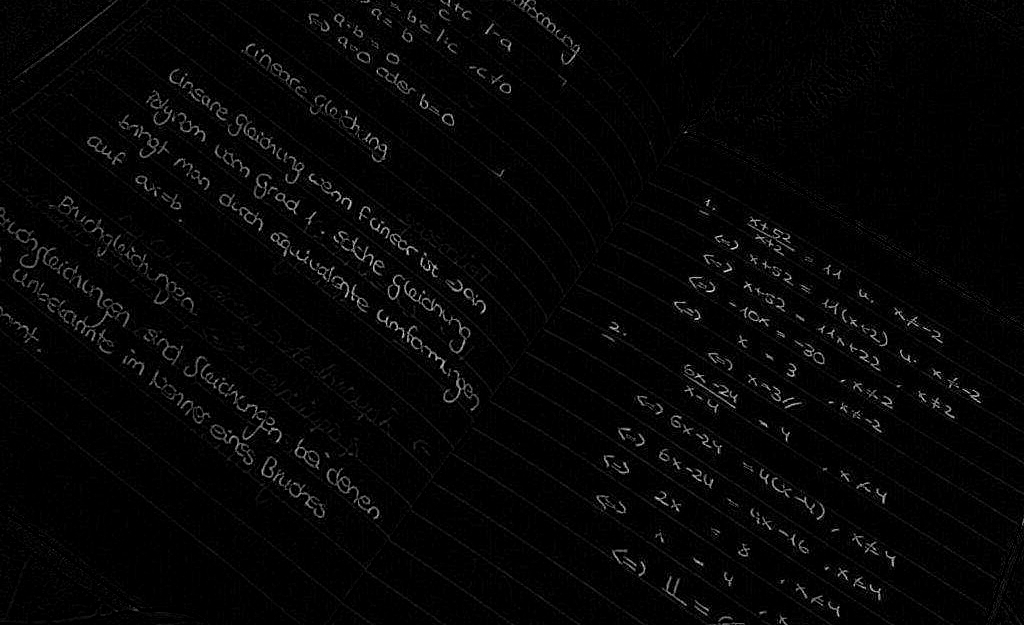 = bc |:c , c≠0
a = b
a·b = 0
<=> a=0 oder b=0
Lineare gleichung
Lineare gleichung wenn F linear ist
Polynom vom Grad 1. Solche gleichung
bringt man durch äquivalente umformungen
auf ax=b.
Bruchgleichungen
Bruchgleichungen sind Gleichungen bei denen
Unbekannte im Nenner eines Bruches
1. x+52/x+2 = 11 u. x≠-2
<=> x+52 = 11(x+2) u. x≠-2
<=> x+52 = 11x+22 , x≠2
<=> -10x = -30 , x≠2
<=> x = 3 , x≠-2
<=> x=3//
2. 6x-24/x-4 = 4 , x≠4
<=> 6x-24 = 4(x-4) , x≠4
<=> 6x-24 = 4x-16 , x≠4
<=> 2x = 8 , x≠4
<=> x = 4 , x
<=> 𝕃 =